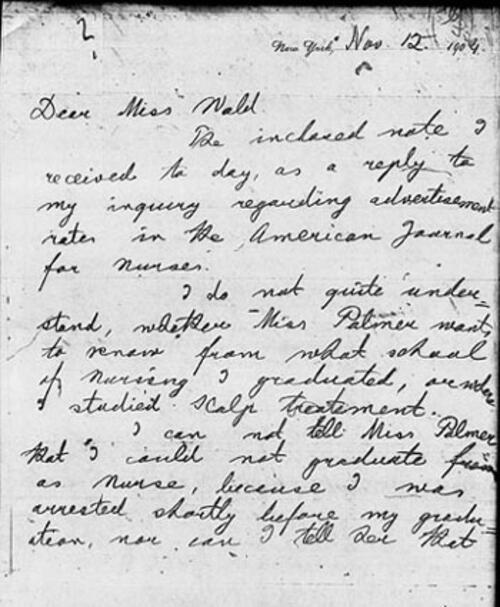 2
New York, Nov. 12. 1904.
Dear Miss Wald
The inclosed note I
received to day, as a reply to
my inquiry regarding advertisement
rates in the American Journal
for Nurses.
I do not quite under-
stand, whether Miss Palmer wants
to know from what school
of Nursing I graduated, or where
I studied scalp treatement.
I can not tell Miss Palmer
that I could not graduate from
as nurse, becuese I was
arrested shortly before my gradu-
ation, nor can I tell her that